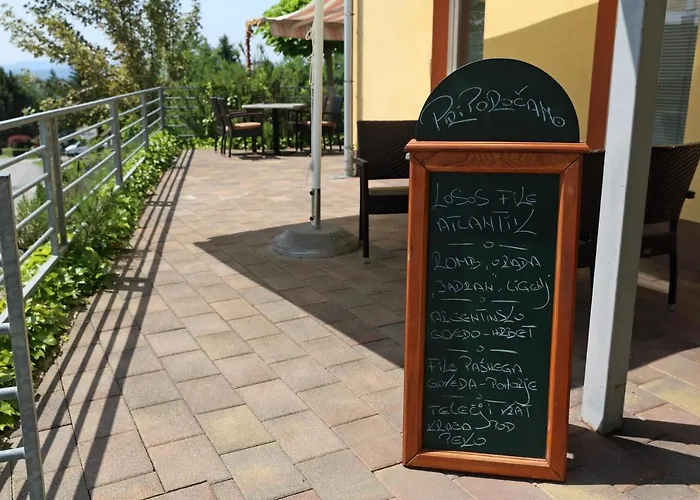 PRIPOROČAMO
LOSOS FILE
ATLANTIK
ROMB, ORADA
JADRAN, LIGENJ
ARGENTINSKO
GOVEDO - HRBET
FILE PAŠNEGA
GOVEDA - POHORJE
TELEČJI VRAT
KRAČA POD
PEKO